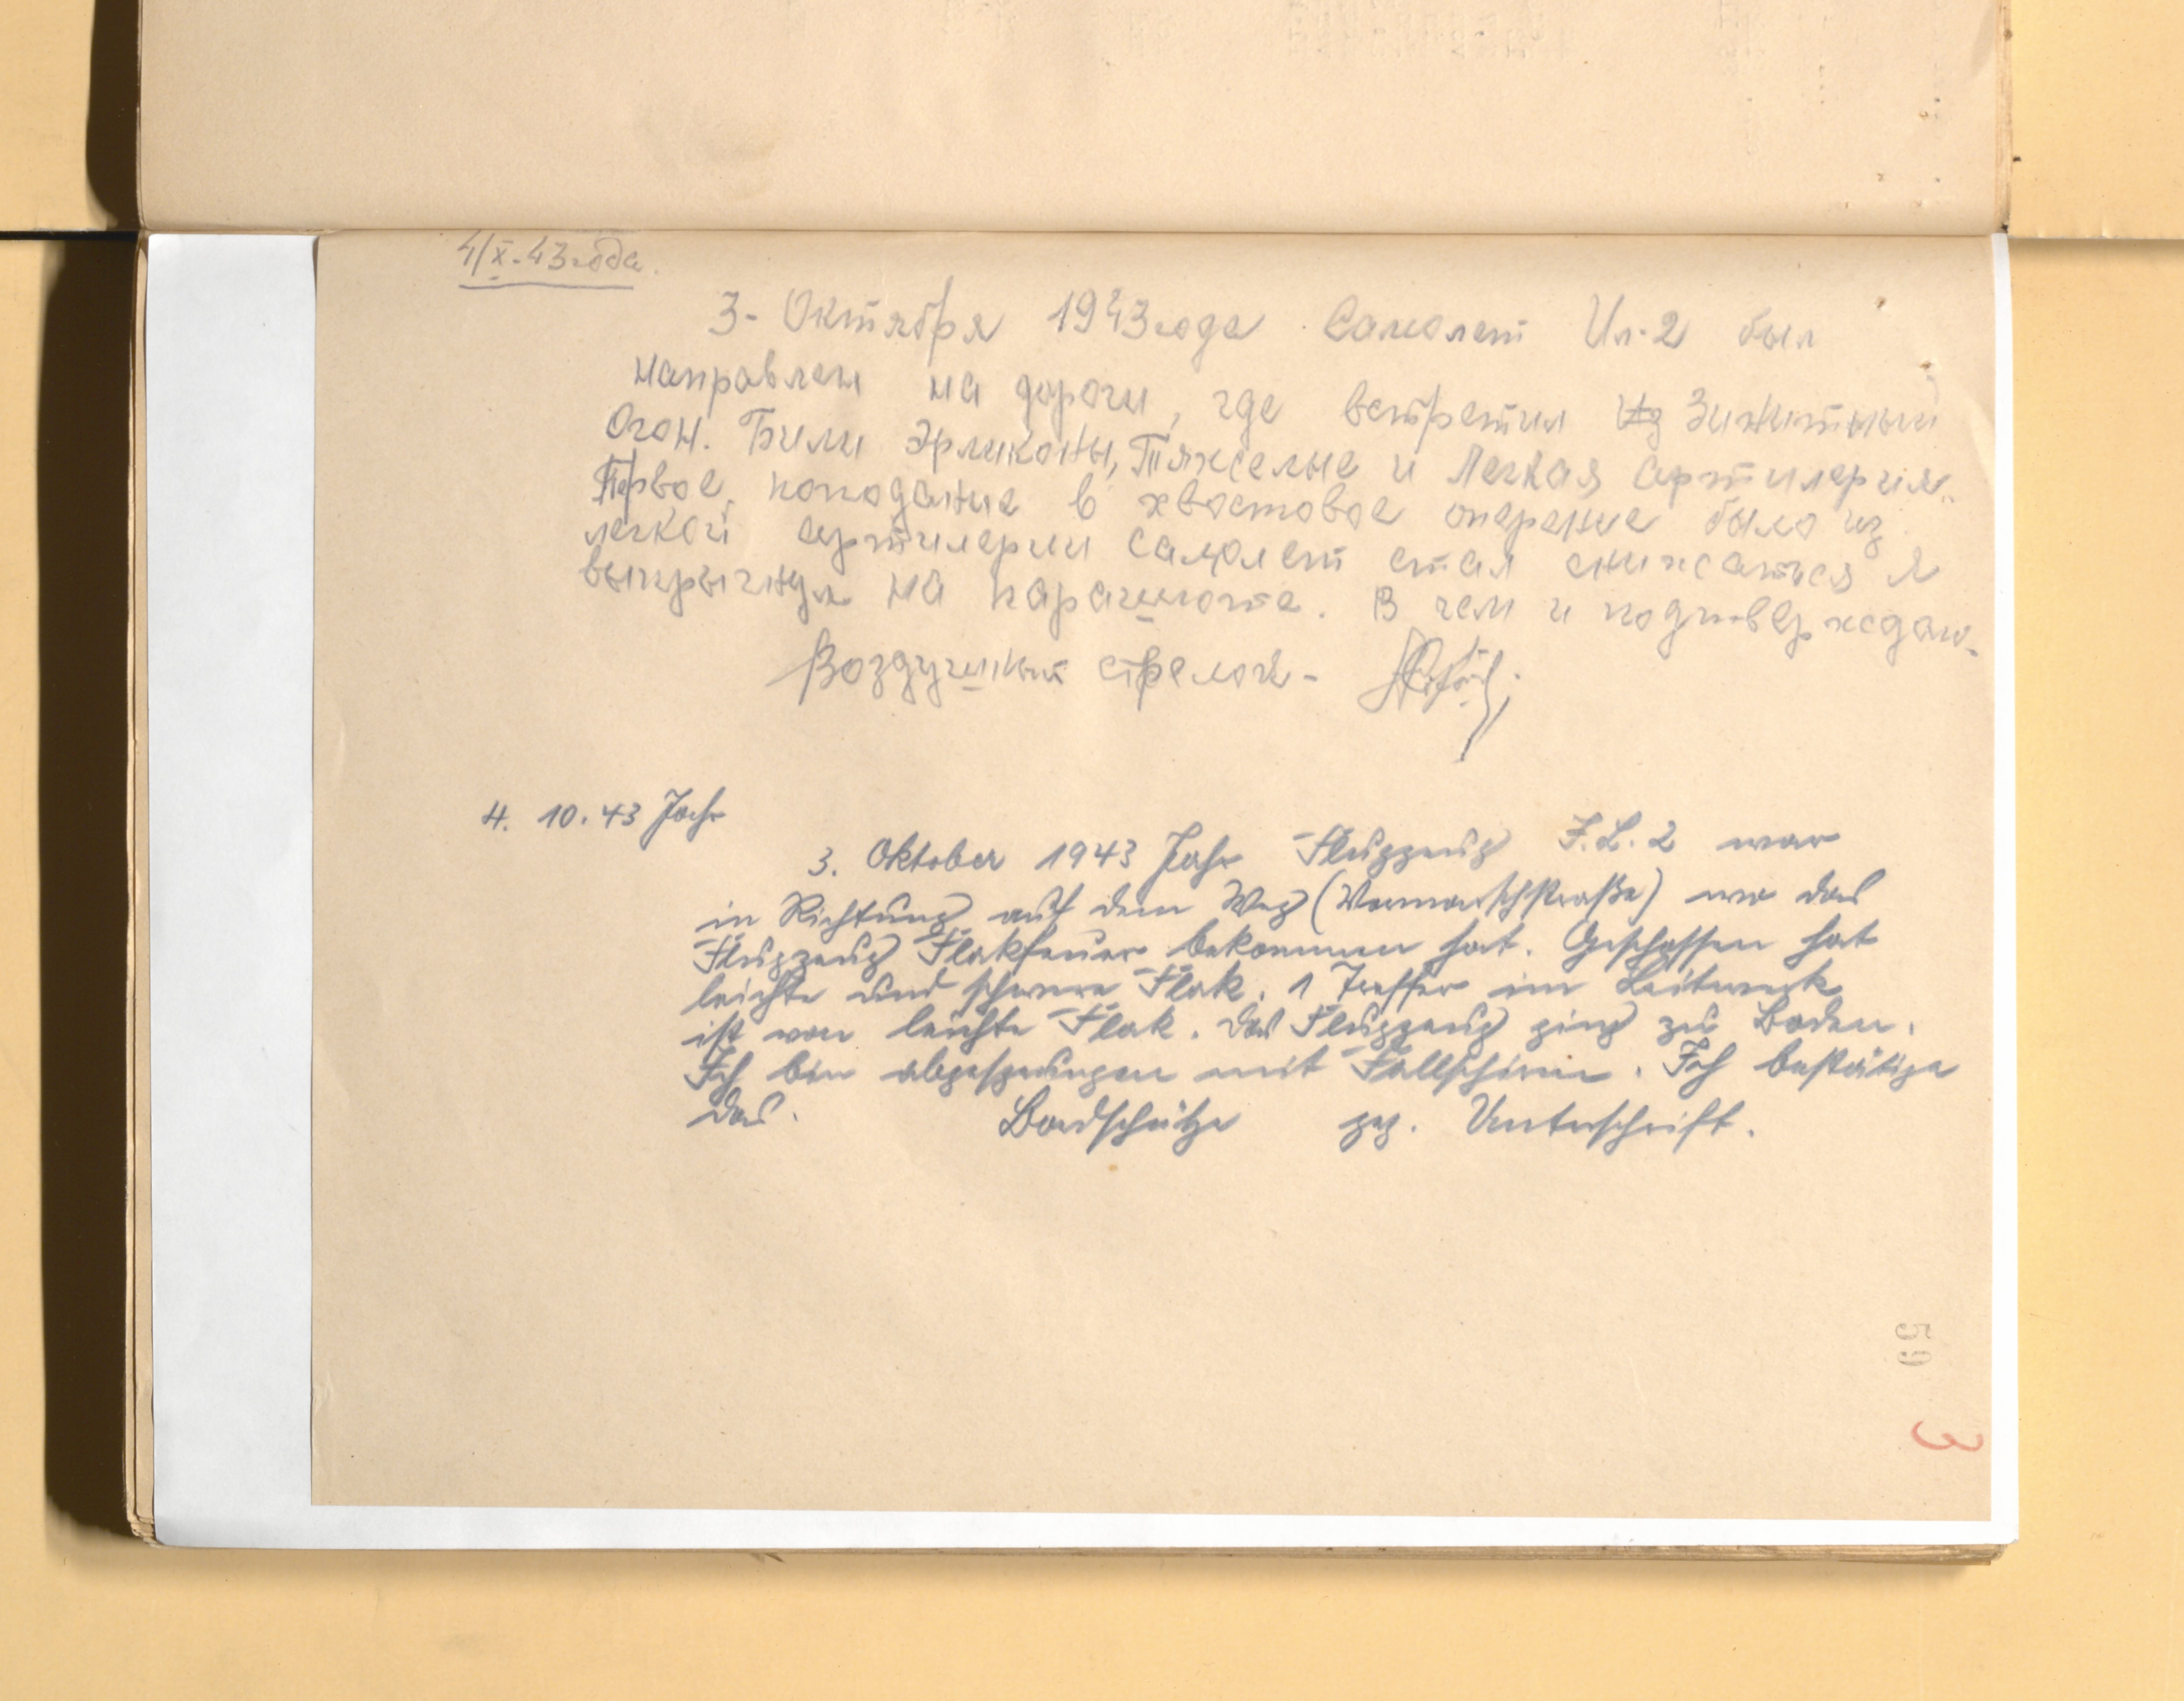 4/X-43 года.
3- Октября 1943 года Самолет Ил-2 был
направлен на дороги, где встретил Из Зинитный
Огон. Били Эрликоны, Тяжелые и Легкая артилерия.
Первое попадание в хвостовое оперение было из
легкой артилерии самолет стал снижатся я
выпрыгнул на парашюте. В чем и подтверждаю.
Воздушный стрелок-
4. 10. 43 Jahr
3. Oktober 1943 Jahr Flugzeug I.L. 2 war
in Richtung auf dem Weg (Vormarschstraße) wo das
Flugzeug Flakfeuer bekommen hat. Geschossen hat
leichte und schwere Flak. 1 Treffer im Leitwerk
ist von leichte Flak. Das Flugzeug ging zu Boden.
Ich bin abgesprungen mit Fallschirm. Ich bestätige
das. Bordschütze gez. Unterschrift.
59
3